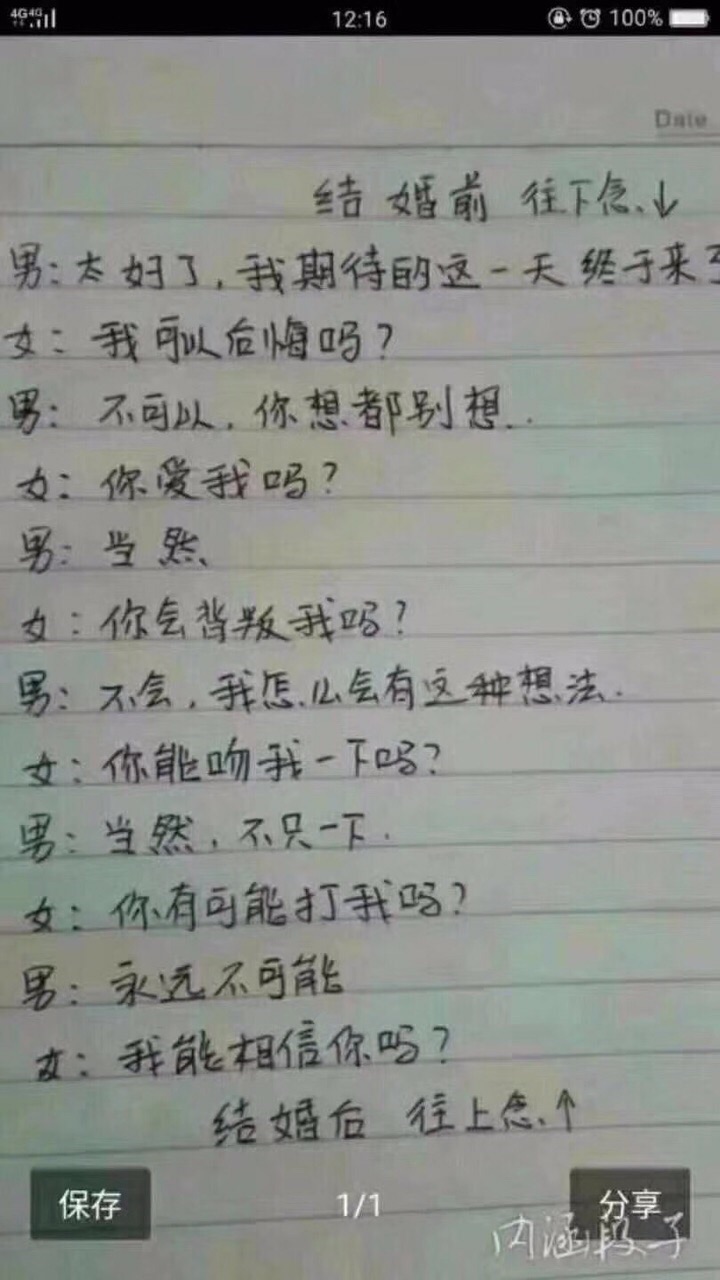 4G 4G 12:16 100%
Date
结婚前 往下念↓
男:太好了,我期待的这一天终于来了
女:我可以后悔吗?
男:不可以,你想都别想..
女:你爱我吗?
男:当然、
女:你会背叛我吗?
男:不会,我怎么会有这种想法.
女:你能吻我一下吗?
男:当然,不只一下.
女:你有可能打我吗?
男:永远不可能
女:我能相信你吗?
结婚后 往上念、↑
保存 1/1 分享
内涵段子